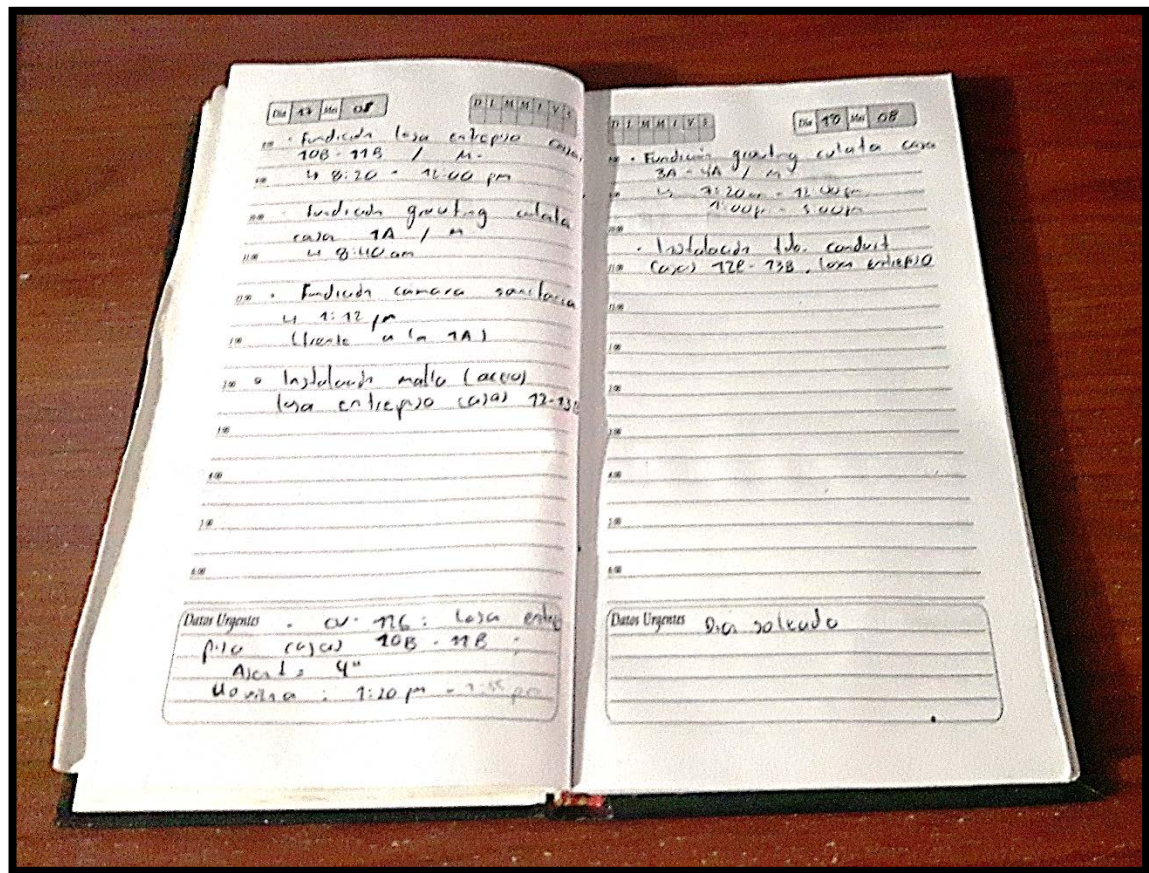 Día 17 Mes 08
D L M M J V S
· Fundición losa entrepiso casas
10B - 11B / M.
↳ 8:20 - 12:00 pm
· Fundición grouting culata
casa 1A / M
↳ 8:40 am
· Fundición camara sanitaria
↳ 1:12 pm
(frente a la 1A)
· Instalación malla (acero)
losa entrepiso casas 12-13B
Datos Urgentes · 126 : Losa entre
piso casas 10B - 11B
Asent = 4"
Llovizna : 1:20 pm -
D L M M J V S
Día 18 Mes 08
· Fundición grouting culata casa
3A - 4A / M
↳ 7:20 am - 12:00 pm
1:00 pm - 5:00 pm
· Instalación tubo. conduit
casas 12B - 13B, losa entrepiso
Datos Urgentes Dia soleado